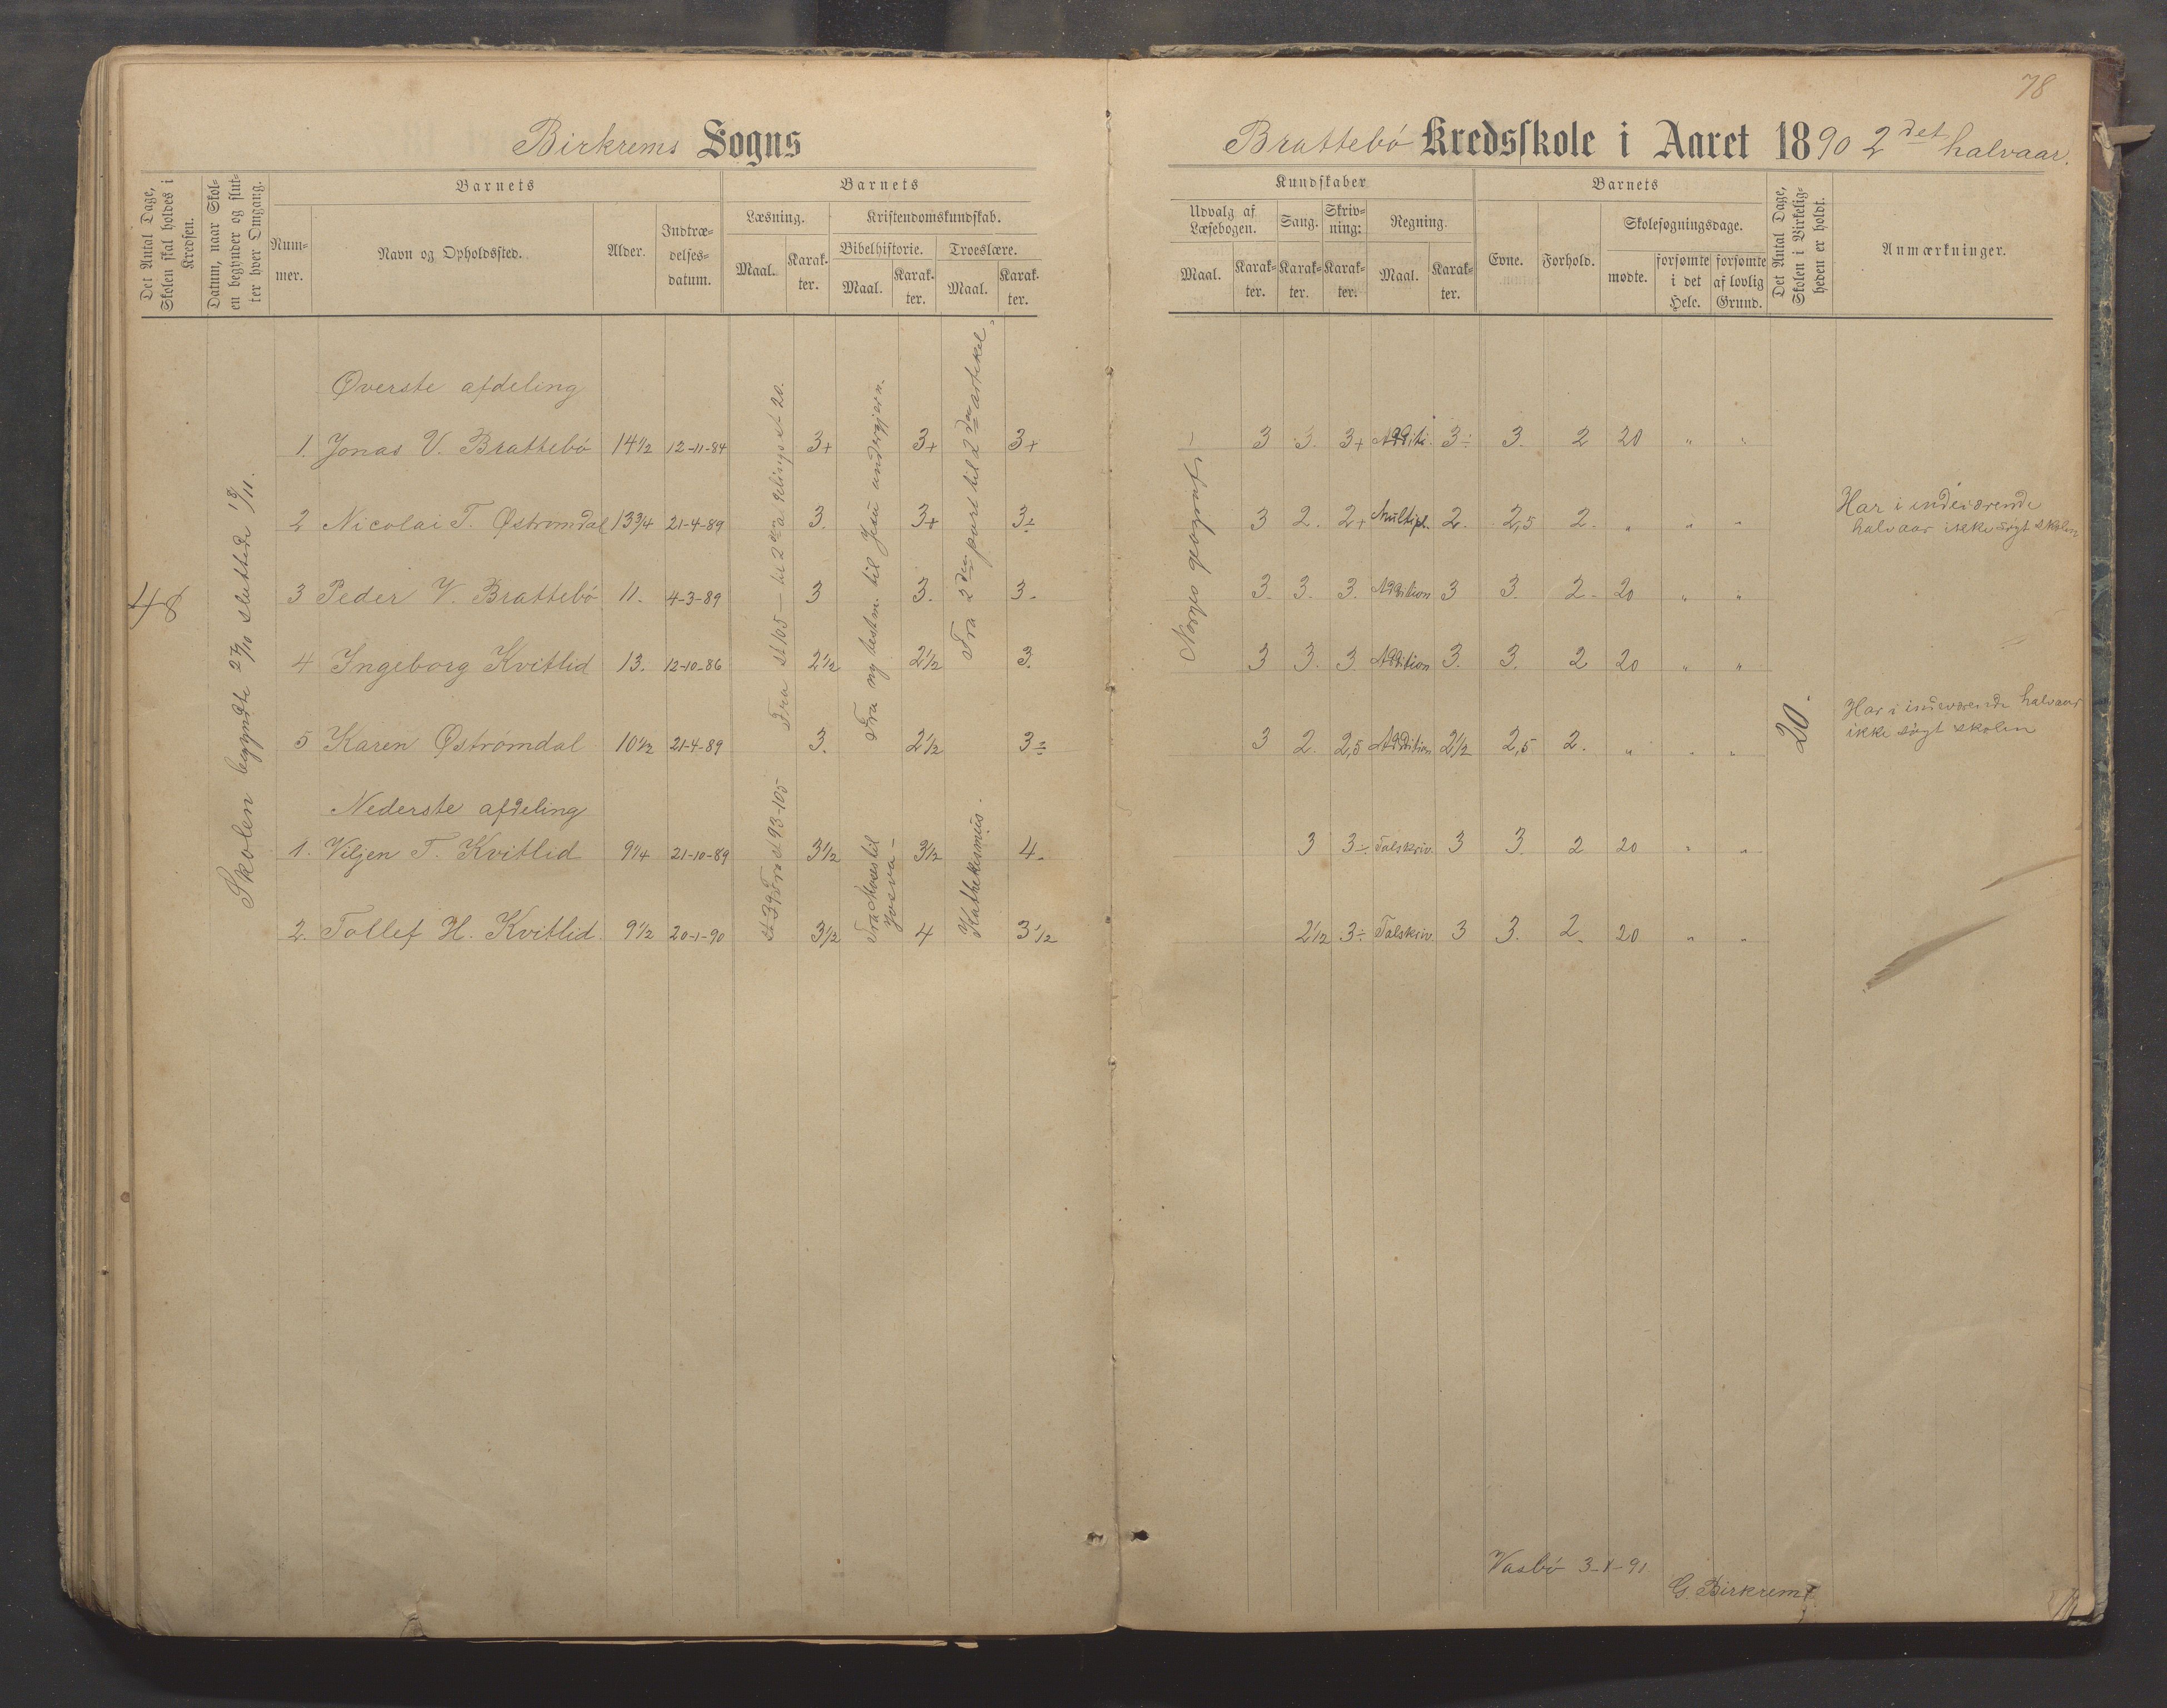 78
Birkrems Sogns
Brattebö Kredsskole i Aaret 1890 2det halvaar.
Det Antal Dage, Skolen skal holdes i Kredsen.
Datum, naar Skolen begynder og slutter hver Omgang.
Barnets
Nummer.
Navn og Opholdssted.
Alder.
Indtrædelsesdatum.
Barnets
Læsning.
Maal.
Karakter.
Kristendomskundskab.
Bibelhistorie.
Maal.
Karakter.
Troeslære.
Maal.
Karakter.
Kundskaber
Udvalg af Læsebogen.
Maal.
Karakter.
Sang.
Karakter.
Skrivning:
Karakter.
Regning.
Maal.
Karakter.
Barnets
Evne.
Forhold.
Skolesøgningsdage.
mødte.
forsømte i det Hele.
forsømte af lovlig Grund.
Det Antal Dage, Skolen i Virkeligheden er holdt.
Anmærkninger.
48
Skolen begyndte 27/10 sluttede 18/11.
Fra st 105 – til 2den afdelings st 20.
Fra ny testm. til Jesu undergjern.
Fra 2den part til 2den artikel.
Norges geograf.
20.
Øverste afdeling
1. Jonas V. Brattebö 14½ 12-11-84 3+ 3+ 3+ 3 3. 3+ Additi. 3÷ 3. 2 20 " "
2 Nicolai T. Østromdal 13¾ 21-4-89 3. 3+ 3÷ 3 2. 2+ Multipl. 2. 2,5 2. " " "
Har i indeværende
halvaar ikke søgt skolen
3 Peder V. Brattebö 11. 4-3-89 3 3. 3. 3. 3. 3. Addition 3 3. 2. 20 " "
4 Ingeborg Kvitlid 13. 12-10-86 2½ 2½ 3. 3 3. 3 Addition 3. 3. 2 20 " "
5 Karen Øströmdal 10½ 21-4-89 3. 2½ 3÷ 3 2. 2,5 Addition 2½ 2,5 2. " " "
Har i indeværende halvaar
ikke søgt skolen
Nederste afdeling
Fra st 93-105
st 39
Fra Moses til
Josva –
Kathekismus.
1. Viljen T. Kvitlid 9¼ 21-10-89 3½ 3½ 4. 3 3÷ Talskriv. 3 3. 2 20 " "
2. Tollef H. Kvitlid. 9½ 20-1-90 3½ 4 3½ 2½ 3÷ Talskriv. 3 3. 2. 20 " "
Vasbö 3-1-91
G. Birkrem